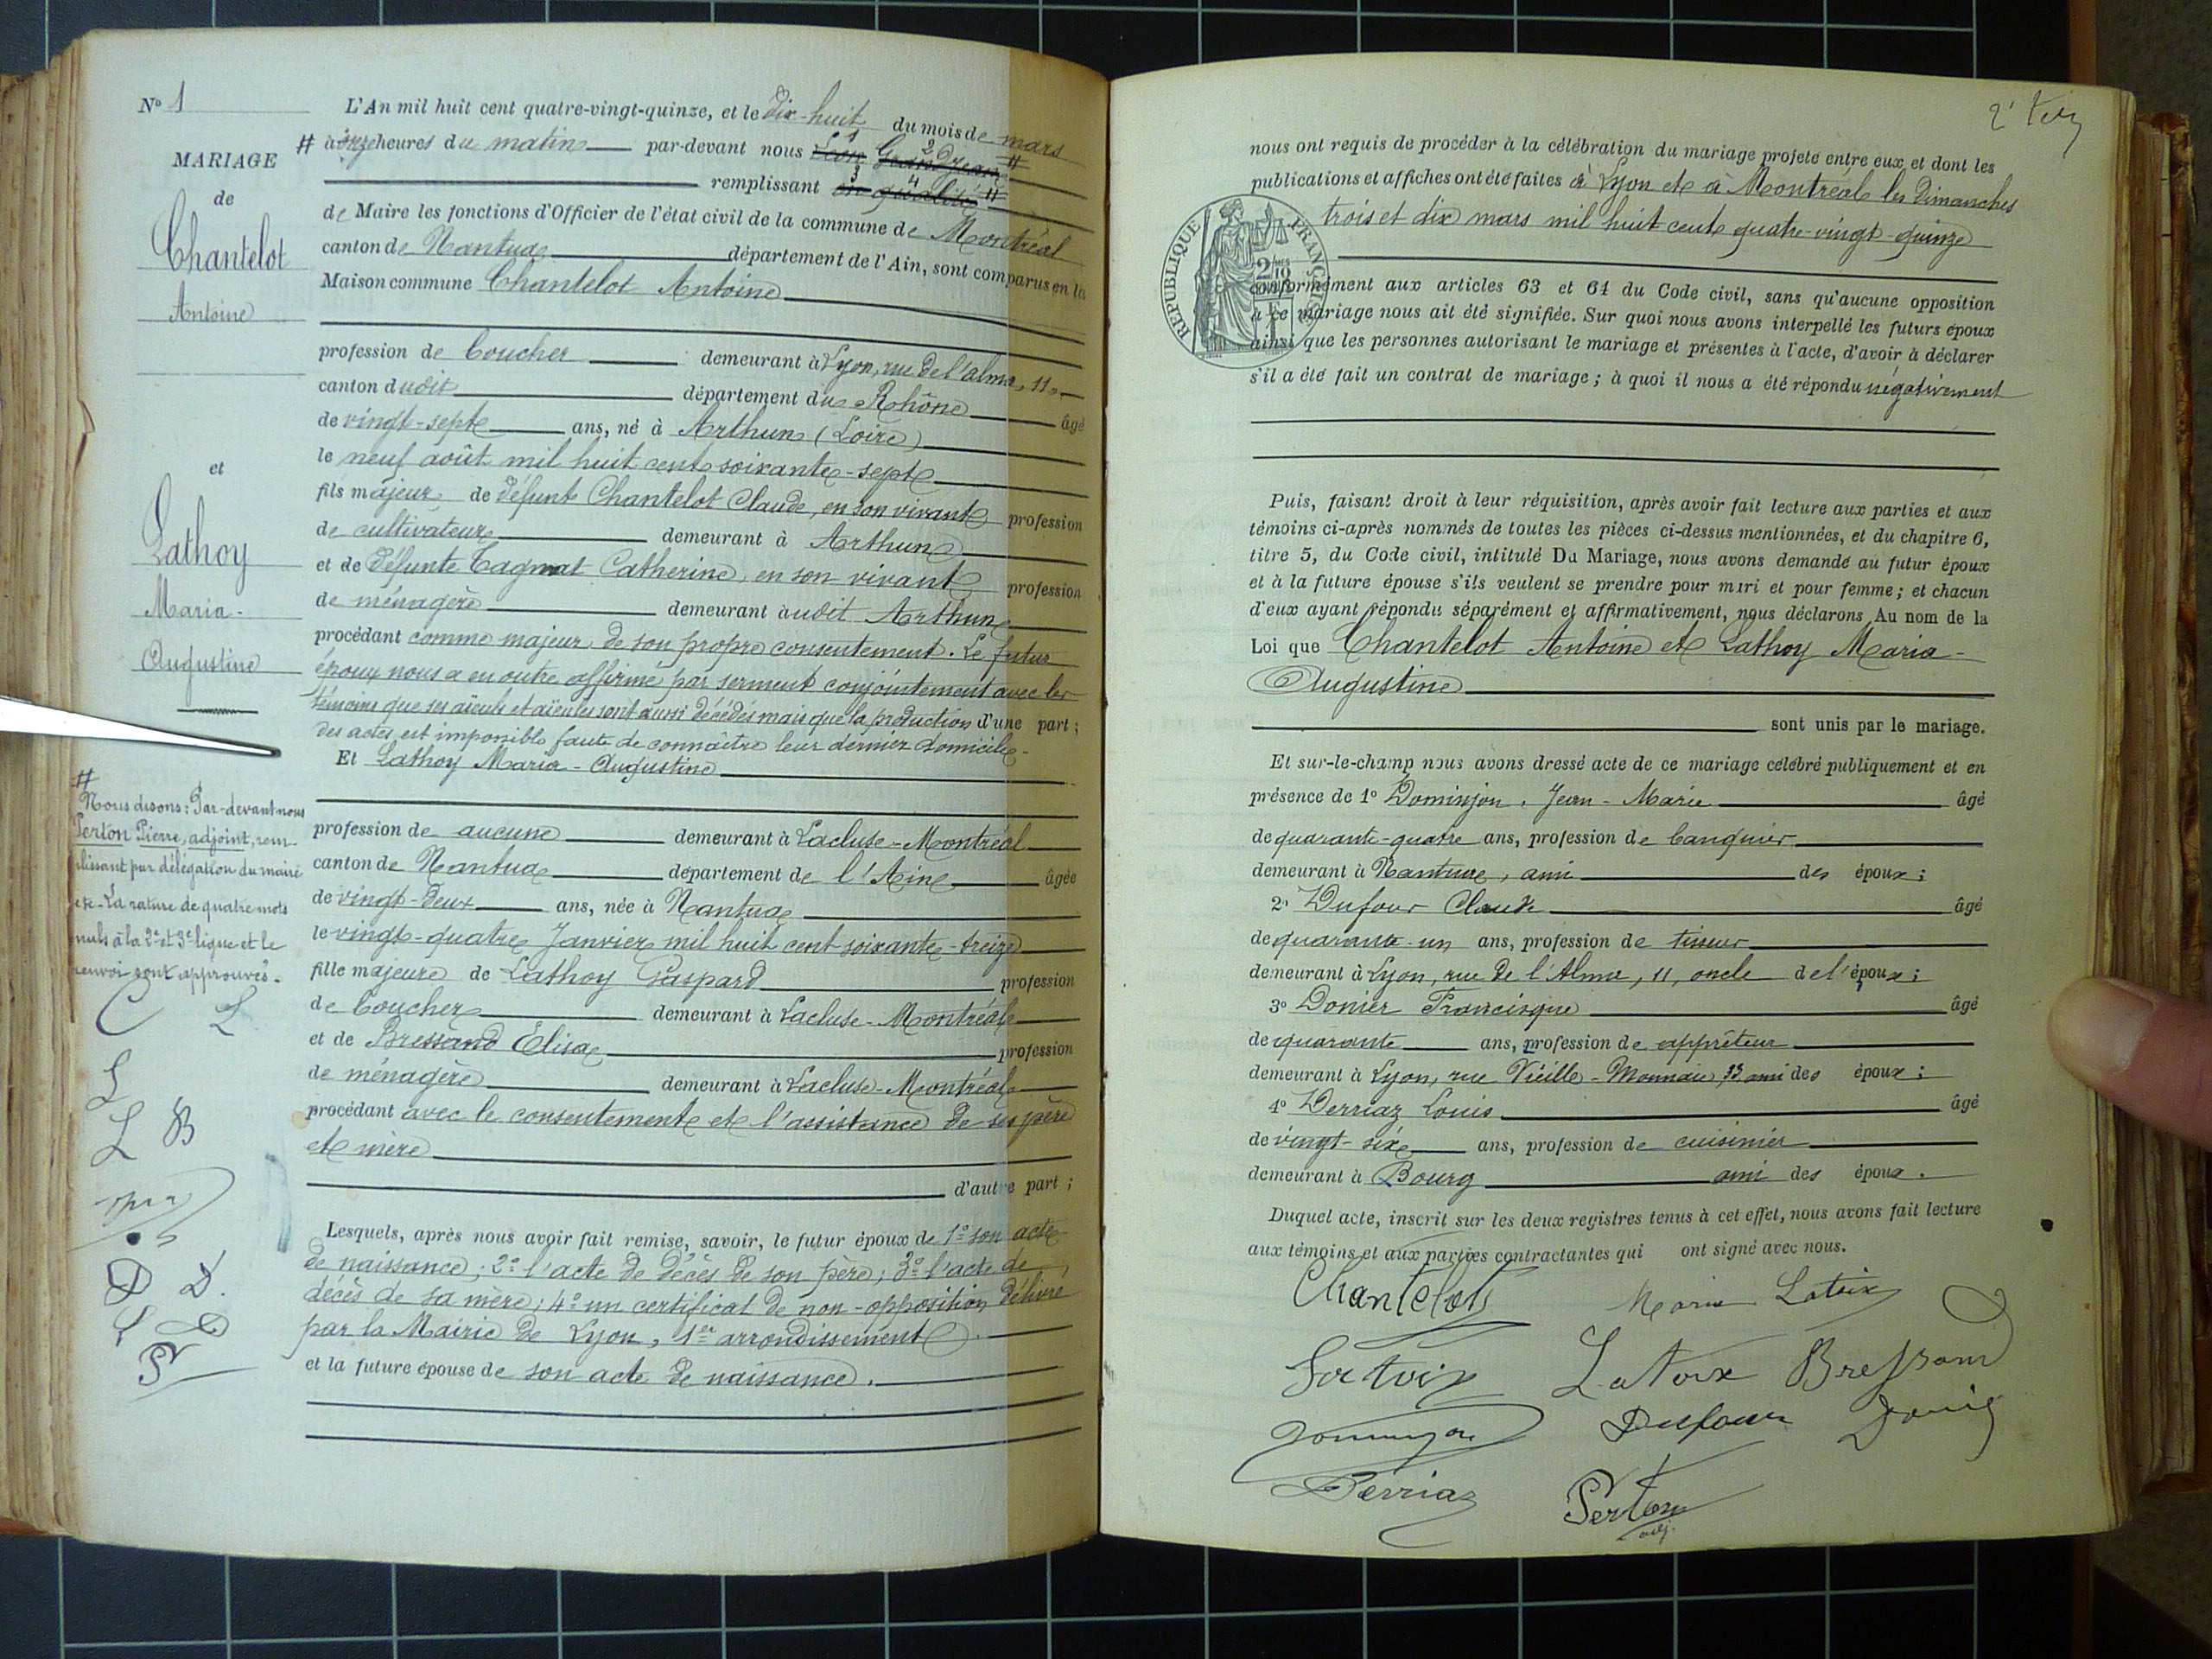 N° 1
MARIAGE
de
Chantelot
Antoine
et
Lathoy
Maria-
Augustine
#
Nous disons: Par-devant nous
Perton Pierre, adjoint, rem-
plissant par délégation du maire
etc - La rature de quatre mots
nuls à la 2e et 3e ligne et le
renvoi sont approuvés.
C L
L
L B
D D.
L D
P
L'An mil huit cent quatre-vingt-quinze, et le dix-huit du mois de mars
# à onze heures du matin par-devant nous Léon Grandjean #
1 2
remplissant en qualité #
3 4
de Maire les fonctions d'Officier de l'état civil de la commune de Montréal
canton de Nantua département de l'Ain, sont comparus en la
Maison commune Chantelot Antoine
profession de boucher demeurant à Lyon, rue de l'alma, 11
canton dudit département du Rhône âgé
de vingt-sept ans, né à Arthun (Loire)
le neuf août mil huit cent soixante-sept
fils majeur de défunt Chantelot Claude, en son vivant profession
de cultivateur demeurant à Arthun
et de défunte Tagnat Catherine, en son vivant profession
de ménagère demeurant audit Arthun
procédant comme majeur de son propre consentement. Le futur
époux nous a en outre affirmé par serment conjointement avec les
témoins que ses aïeuls et aïeules sont aussi décédés mais que la production d'une part;
des actes est impossible faute de connaître leur dernier domicile-
Et Lathoy Maria-Augustine
profession de aucune demeurant à Lacluse-Montréal
canton de Nantua département de l'Ain âgée
de vingt-deux ans, née à Nantua
le vingt-quatre Janvier mil huit cent soixante-treize
fille majeure de Lathoy Gaspard profession
de boucher demeurant à Lacluse-Montréal
et de Bressand Élisa profession
de ménagère demeurant à Lacluse-Montréal
procédant avec le consentement et l'assistance de ses père
et mère
d'autre part;
Lesquels, après nous avoir fait remise, savoir, le futur époux de 1° son acte
de naissance; 2° l'acte de décès de son père; 3° l'acte de
décès de sa mère; 4° un certificat de non-opposition délivré
par la Mairie de Lyon, 1er arrondissement.
et la future épouse de son acte de naissance.
nous ont requis de procéder à la célébration du mariage projeté entre eux, et dont les
publications et affiches ont été faites à Lyon et à Montréal les Dimanches
trois et dix mars mil huit cent quatre-vingt-quinze
REPUBLIQUE FRANÇAISE
conformément aux articles 63 et 64 du Code civil, sans qu'aucune opposition
à ce mariage nous ait été signifiée. Sur quoi nous avons interpellé les futurs époux
ainsi que les personnes autorisant le mariage et présentes à l'acte, d'avoir à déclarer
s'il a été fait un contrat de mariage; à quoi il nous a été répondu négativement
Puis, faisant droit à leur réquisition, après avoir fait lecture aux parties et aux
témoins ci-après nommés de toutes les pièces ci-dessus mentionnées, et du chapitre 6,
titre 5, du Code civil, intitulé Du Mariage, nous avons demandé au futur époux
et à la future épouse s'ils veulent se prendre pour mari et pour femme; et chacun
d'eux ayant répondu séparément et affirmativement, nous déclarons Au nom de la
Loi que Chantelot Antoine et Lathoy Maria-
Augustine
sont unis par le mariage.
Et sur-le-champ nous avons dressé acte de ce mariage célébré publiquement et en
présence de 1° Dominjon, Jean-Marie âgé
de quarante-quatre ans, profession de banquier
demeurant à Nantua, ami des époux;
2° Dufour Claude âgé
de quarante-un ans, profession de tisseur
demeurant à Lyon, rue de l'Alma, 11, oncle de l'époux;
3° Donier Francisque âgé
de quarante ans, profession de apprêteur
demeurant à Lyon, rue Vieille-Monnaie, 33 ami des époux;
4° Derriaz Louis âgé
de vingt-six ans, profession de cuisinier
demeurant à Bourg ami des époux.
Duquel acte, inscrit sur les deux registres tenus à cet effet, nous avons fait lecture
aux témoins et aux parties contractantes qui ont signé avec nous.
Chantelot Maria Latoix
Latoix Latoix Bressand
Dominjon Dufour Donier
Derriaz Perton
adj.